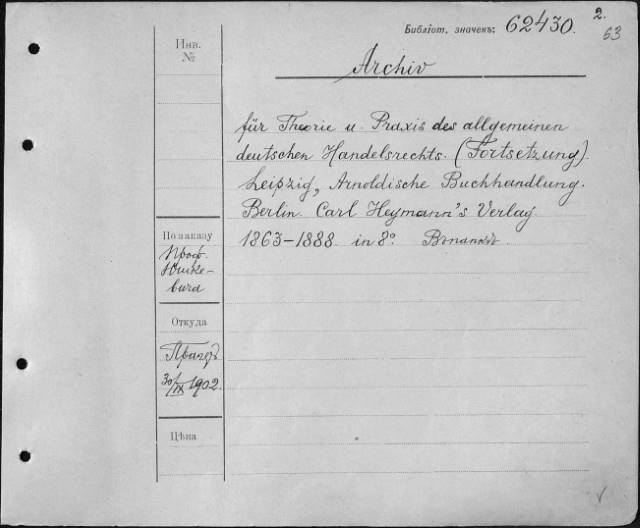 Библіот. значекъ: 62430. 2.
63
Инв.
№
Archiv
für Theorie u. Praxis des allgemeinen
deutschen Handelsrechts. (Fortsetzung)
Leipzig, Arnoldische Buchhandlung.
Berlin. Carl Heymann's Verlag
1863-1888. in 8°.
По заказу
Проф.
Откуда
30/IX 1902.
Цѣна